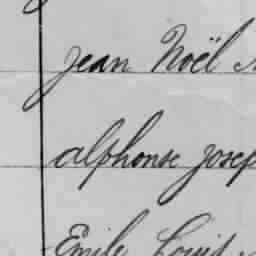 Jean Noël
alphonse Josep
Emile Louis